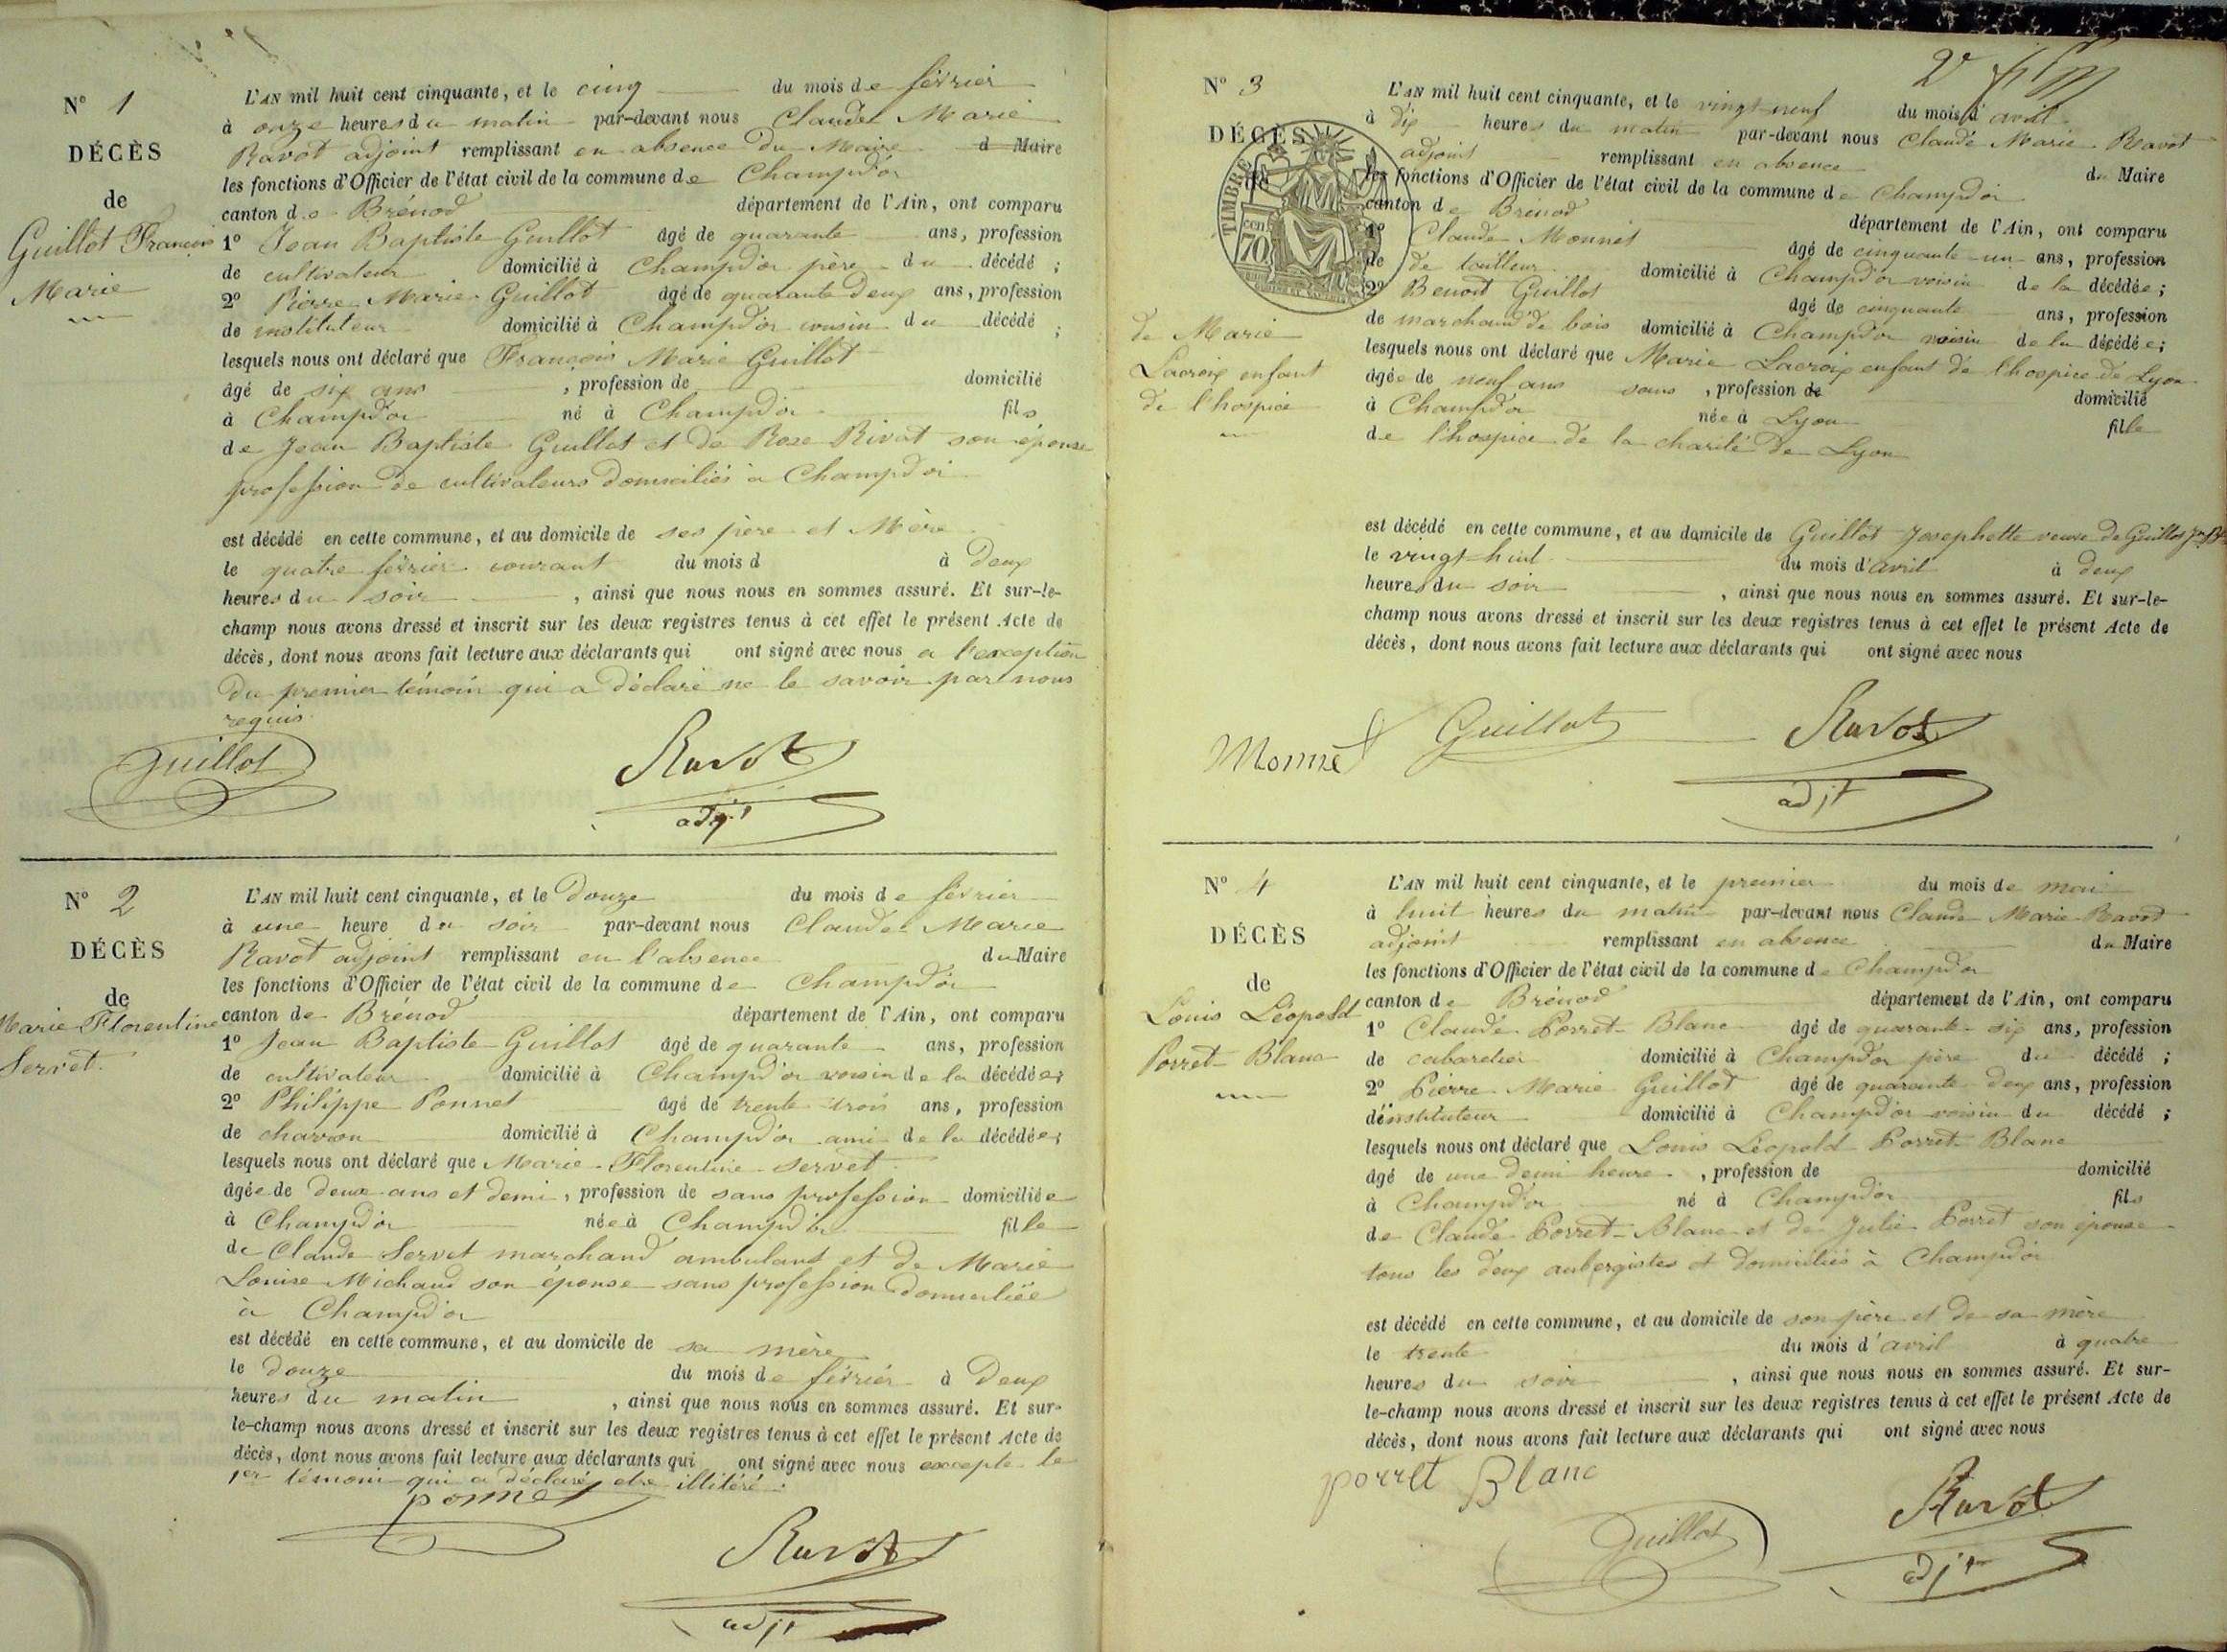 N° 1
DÉCÈS
de
Guillot François
Marie
L'AN mil huit cent cinquante, et le cinq du mois de février
à onze heures du matin par-devant nous Claude Marie
Ravot adjoint remplissant en absence du Maire d Maire
les fonctions d'Officier de l'état civil de la commune de Champd'or
canton de Brénod département de l'Ain, ont comparu
1° Jean Baptiste Guillot âgé de quarante ans, profession
de cultivateur domicilié à Champd'or père du décédé ;
2° Pierre Marie Guillot âgé de quarante deux ans, profession
de instituteur domicilié à Champd'or cousin du décédé ;
lesquels nous ont déclaré que François Marie Guillot
âgé de six ans , profession de domicilié
à Champd'or né à Champd'or fils
de Jean Baptiste Guillot et de Rose Rivat son épouse
profession de cultivateurs domiciliés à Champd'or
est décédé en cette commune, et au domicile de ses père et Mère
le quatre février courant du mois d à deux
heures du soir , ainsi que nous nous en sommes assuré. Et sur-le-
champ nous avons dressé et inscrit sur les deux registres tenus à cet effet le présent Acte de
décès, dont nous avons fait lecture aux déclarants qui ont signé avec nous a l'exception
du premier témoin qui a déclaré ne le savoir par nous
requis.
Guillot
Ravot
adjt
N° 2
DÉCÈS
de
Marie Florentine
Servet.
L'AN mil huit cent cinquante, et le douze du mois de février
à une heure du soir par-devant nous Claude Marie
Ravot adjoint remplissant en l'absence du Maire
les fonctions d'Officier de l'état civil de la commune de Champd'or
canton de Brénod département de l'Ain, ont comparu
1° Jean Baptiste Guillot âgé de quarante ans, profession
de cultivateur domicilié à Champd'or voisin de la décédée;
2° Philippe Ponnet âgé de trente trois ans, profession
de charron domicilié à Champd'or ami de la décédée;
lesquels nous ont déclaré que Marie Florentine Servet
âgée de deux ans et demi, profession de sans profession domiciliée
à Champd'or née à Champd'or fille
de Claude Servet marchand ambulant et de Marie
Louise Michaud son épouse sans profession domiciliée
à Champd'or
est décédé en cette commune, et au domicile de sa mère
le douze du mois de février à deux
heures du matin , ainsi que nous nous en sommes assuré. Et sur-
le-champ nous avons dressé et inscrit sur les deux registres tenus à cet effet le présent Acte de
décès, dont nous avons fait lecture aux déclarants qui ont signé avec nous excepte le
1er témoin qui a déclaré etre illitéré.
ponnet
Ravot
adjt
N° 3
DÉCÈS
de
TIMBRE
70
de Marie
Lacroix enfant
de l'hospice
L'AN mil huit cent cinquante, et le vingt-neuf du mois d'avril
à dix heures du matin par-devant nous Claude Marie Ravot
adjoint remplissant en absence du Maire
les fonctions d'Officier de l'état civil de la commune de Champd'or
canton de Brénod département de l'Ain, ont comparu
1° Claude Monnet âgé de cinquante-un ans, profession
de domicilié à Champd'or voisin de la décédée;
2° Benoit Guillot âgé de cinquante ans, profession
de marchand de bois domicilié à Champd'or voisin de la décédée;
lesquels nous ont déclaré que Marie Lacroix enfant de l'hospice de Lyon
âgée de neuf ans sans , profession de domicilié
à Champd'or née à Lyon fille
de l'hospice de la charité de Lyon
est décédé en cette commune, et au domicile de Guillot Josephette veuve de Guillot
le vingt-huit du mois d'avril à deux
heures du soir , ainsi que nous nous en sommes assuré. Et sur-le-
champ nous avons dressé et inscrit sur les deux registres tenus à cet effet le présent Acte de
décès, dont nous avons fait lecture aux déclarants qui ont signé avec nous
Monnet
Guillot
Ravot
adjt
N° 4
DÉCÈS
de
Louis Léopold
Porret-Blanc
L'AN mil huit cent cinquante, et le premier du mois de mai
à huit heures du matin par-devant nous Claude Marie Ravot
adjoint remplissant en absence du Maire
les fonctions d'Officier de l'état civil de la commune de Champd'or
canton de Brénod département de l'Ain, ont comparu
1° Claude Porret-Blanc âgé de quarante-six ans, profession
de cabaretier domicilié à Champd'or père du décédé ;
2° Pierre Marie Guillot âgé de quarante-deux ans, profession
d'instituteur domicilié à Champd'or voisin du décédé ;
lesquels nous ont déclaré que Louis Léopold Porret-Blanc
âgé de une demi heure , profession de domicilié
à Champd'or né à Champd'or fils
de Claude Porret-Blanc et de Julie Porret son épouse
tous les deux aubergistes et domiciliés à Champd'or
est décédé en cette commune, et au domicile de son père et de sa mère
le trente du mois d'avril à quatre
heures du soir , ainsi que nous nous en sommes assuré. Et sur-
le-champ nous avons dressé et inscrit sur les deux registres tenus à cet effet le présent Acte de
décès, dont nous avons fait lecture aux déclarants qui ont signé avec nous
porret Blanc
Guillot
Ravot
adjt